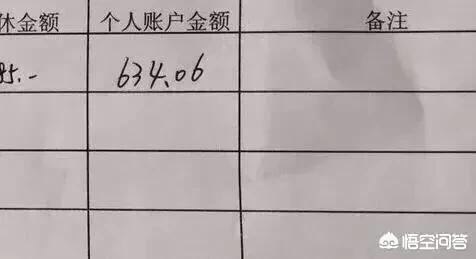 休金额 个人账户金额 备注
95.- 634.06
悟空问答